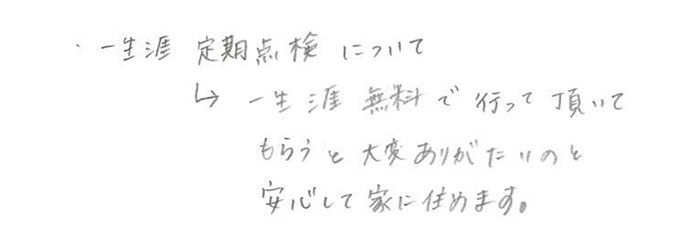 ・一生涯 定期点検 について
↳ 一生涯 無料で 行って 頂いて
もらうと 大変ありがたいのと
安心して 家に 住めます。